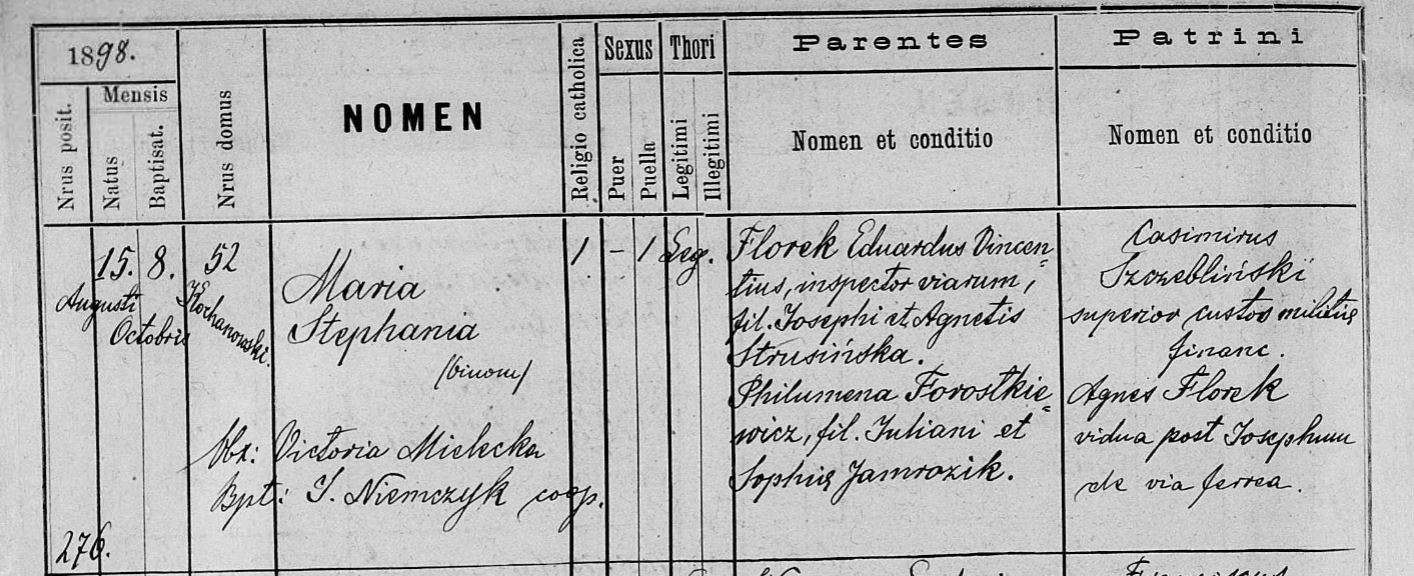 1898.
Nrus posit.
Mensis
Natus
Baptisat.
Nrus domus
NOMEN
Religio catholica
Sexus
Puer
Puella
Thori
Legitimi
Illegitimi
Parentes
Nomen et conditio
Patrini
Nomen et conditio
276.
15. 8.
Augusti
Octobris
52
Kochanowski.
Maria
Stephania
/binom/
Obx: Victoria Mielecka
Bpt: J. Niemczyk coop.
1
-
1
Leg.
Florek Eduardus Vincen=
tius, inspector viarum,
fil. Josephi et Agnetis
Strusińska.
Philumena Forostkie=
wicz, fil. Juliani et
Sophię Jamrozik.
Casimirus
Szczebliński
superior custos militię
financ.
Agnes Florek
vidua post Josephum
de via ferrea.